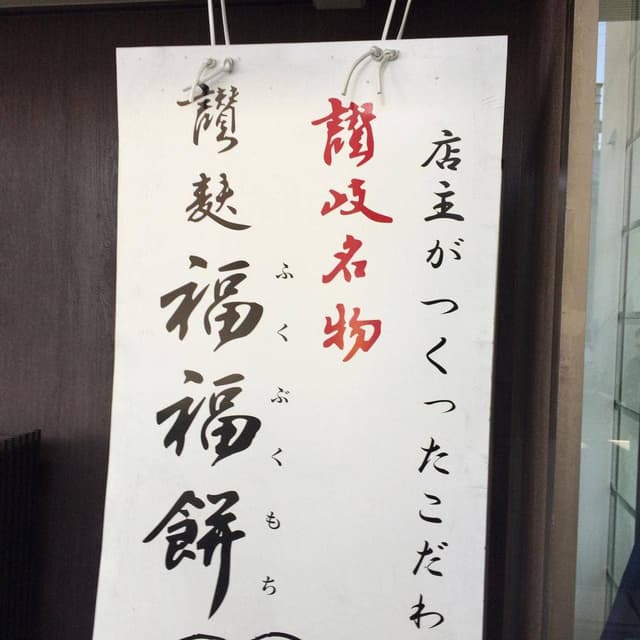 店主がつくったこだわ
讃岐名物
讃麩
福福餅
ふくぶくもち